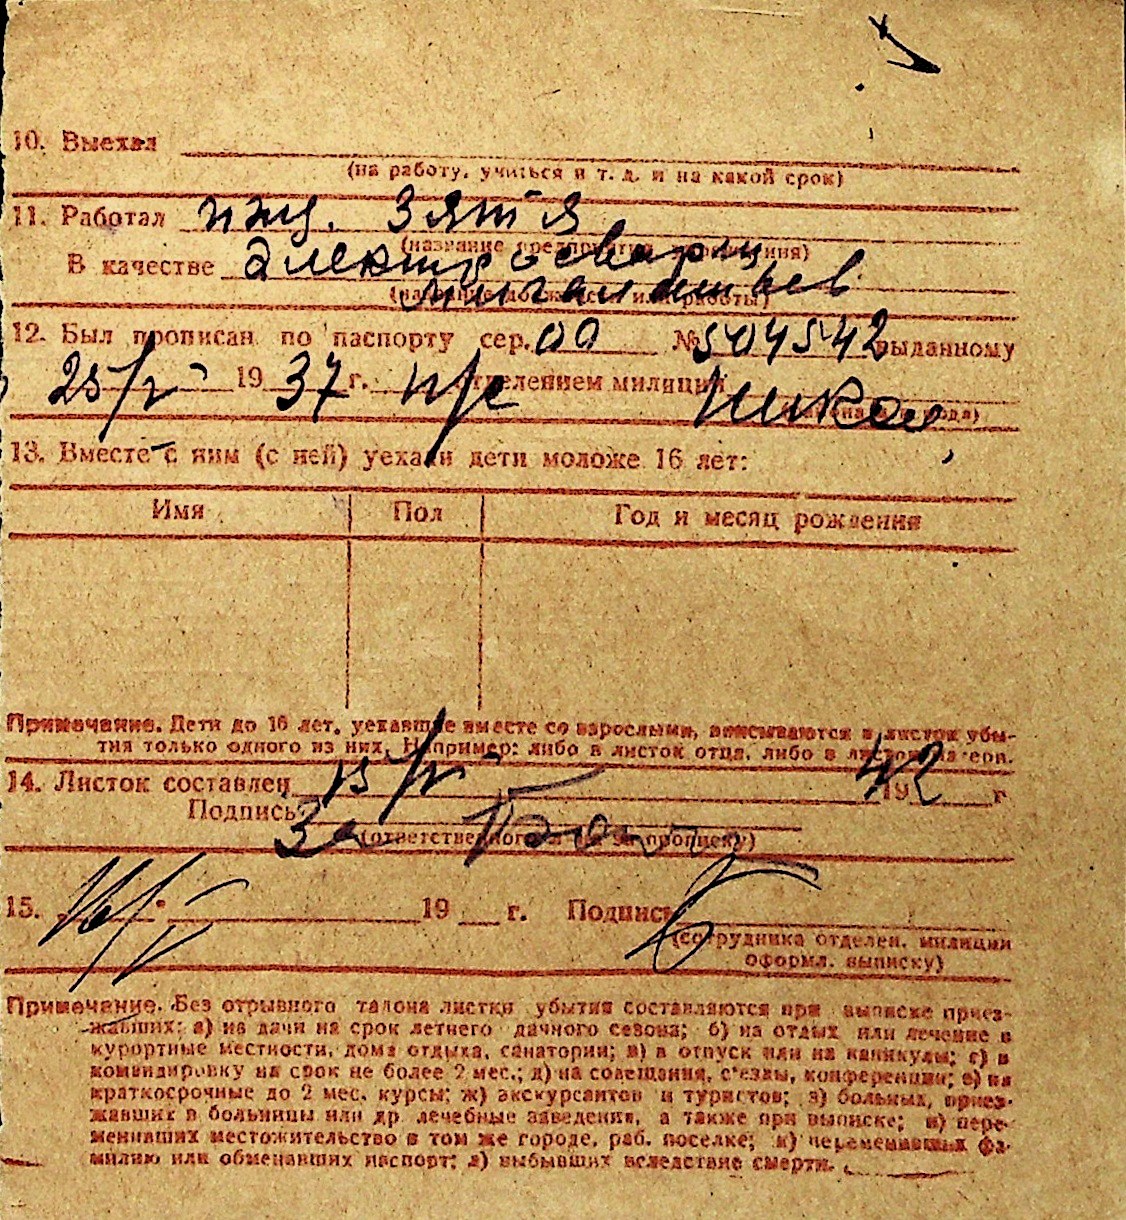 10. Выехал
(на работу, учиться и т. д. и на какой срок)
11. Работал ижд. зятя
(название предприятия, учреждения)
В качестве электросварщ
(название должности или работы)
12. Был прописан по паспорту сер. 00 № 504542 выданному
25/V- 19 37 г. н/с отделением милиции Никол
(района и города)
13. Вместе с ним (с ней) уехали дети моложе 16 лет:
Имя Пол Год и месяц рождения
Примечание. Дети до 16 лет, уехавшие вместе со взрослыми, вписываются в листок убы-
тия только одного из них. Например: либо в листок отца, либо в листок матери.
14. Листок составлен 15/V- 1942 г
Подпись За
(ответственного за прописку)
15. 19 г. Подпись
(сотрудника отделен. милиции
оформл. выписку)
Примечание. Без отрывного талона листки убытия составляются при выписке приез-
жавших: а) на дачи на срок летнего дачного сезона; б) на отдых или лечение в
курортные местности, дома отдыха, санатории; в) в отпуск или на каникулы; г) в
командировку на срок не более 2 мес.; д) на совещания, с'езды, конференции; е) на
краткосрочные до 2 мес. курсы; ж) экскурсантов и туристов; з) больных, приез-
жавших в больницы или др. лечебные заведения, а также при выписке; и) пере-
менивших местожительство в том же городе, раб. поселке; к) переменивших фа-
милию или обменявших паспорт; л) выбывших вследствие смерти.